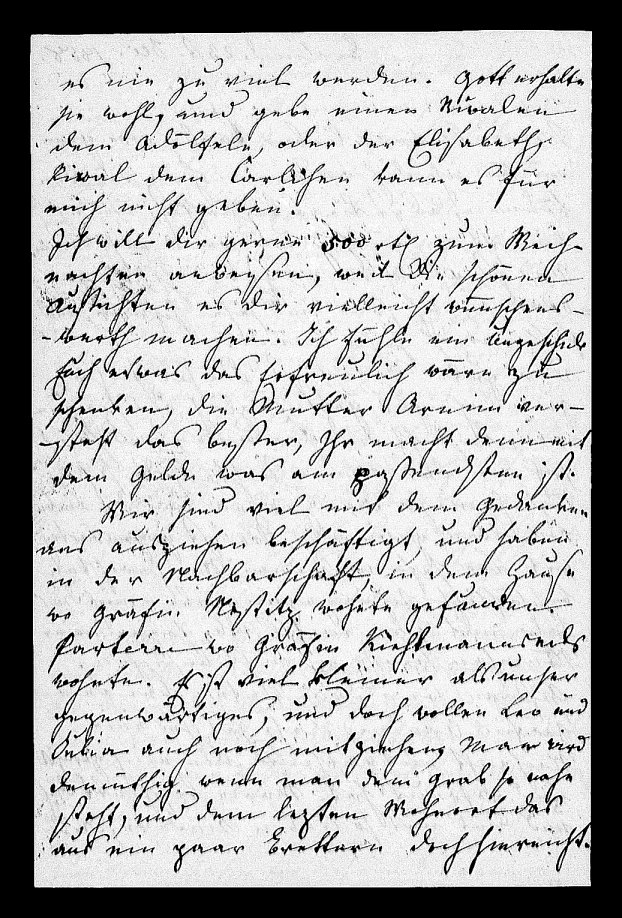 es nie zu viel werden. Gott erhalte
sie wohl, und gebe einen Rivalen
dem Adölfele, oder der Elisabeth,
Rival dem Carlchen kann es für
mich nicht geben.
Ich will dir gerne 500 rtl zum Weih-
nachten anweisen, weil die schönen
Aussichten es dir vielleicht wünschens-
-werth machen. Ich fühle mein Ungeschick
Euch etwas das erfreulich wäre zu
schenken, die Mutter Arnim ver-
-steht das besser, Ihr macht denn mit
dem Gelde was am passendsten ist.
Wir sind viel mit dem Gedanken
ans ausziehen beschäftigt, und haben
in der Nachbarschaft, in dem Hause
wo Gräfin Nostitz wohnte gefunden.
Parterre wo Gräfin
wohnte. Es ist viel kleiner als unser
gegenwärtiges, und doch wollen Leo und
Julia auch noch mitziehen, Man wird
demüthig wenn man dem Grab so nahe
steht, und dem lezten Wohnort das
aus ein paar Brettern doch hinreicht.